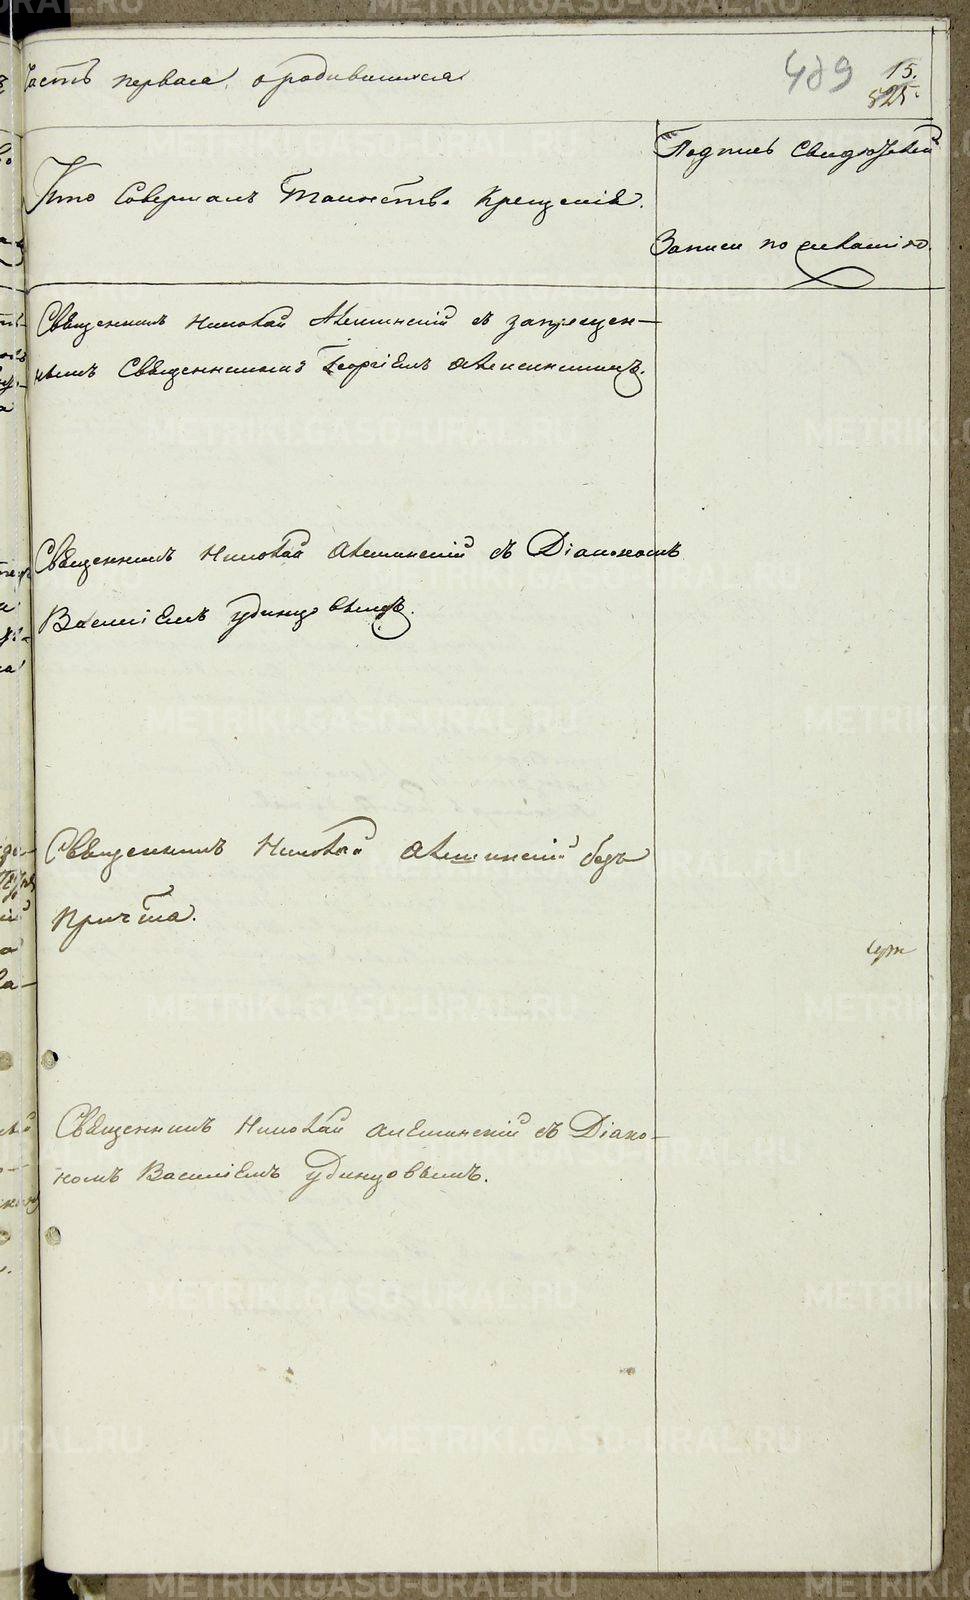 Часть первая, о родившихся
489
15.
525.
Кто совершалъ таинство крещенія.
Подпись свидѣтелей
записи по желанію.
Священникъ Николай Алешинскій съ запрещен-
нымъ священникомъ Георгіемъ
Священникъ Николай Алешинскій съ Діакономъ
Василіемъ Удинцовымъ.
Священникъ Николай Алешинскій безъ
причта.
Священникъ Николай Алешинскій съ Діако-
номъ Василіемъ Удинцовымъ.
METRIKI.GASO-URAL.RU